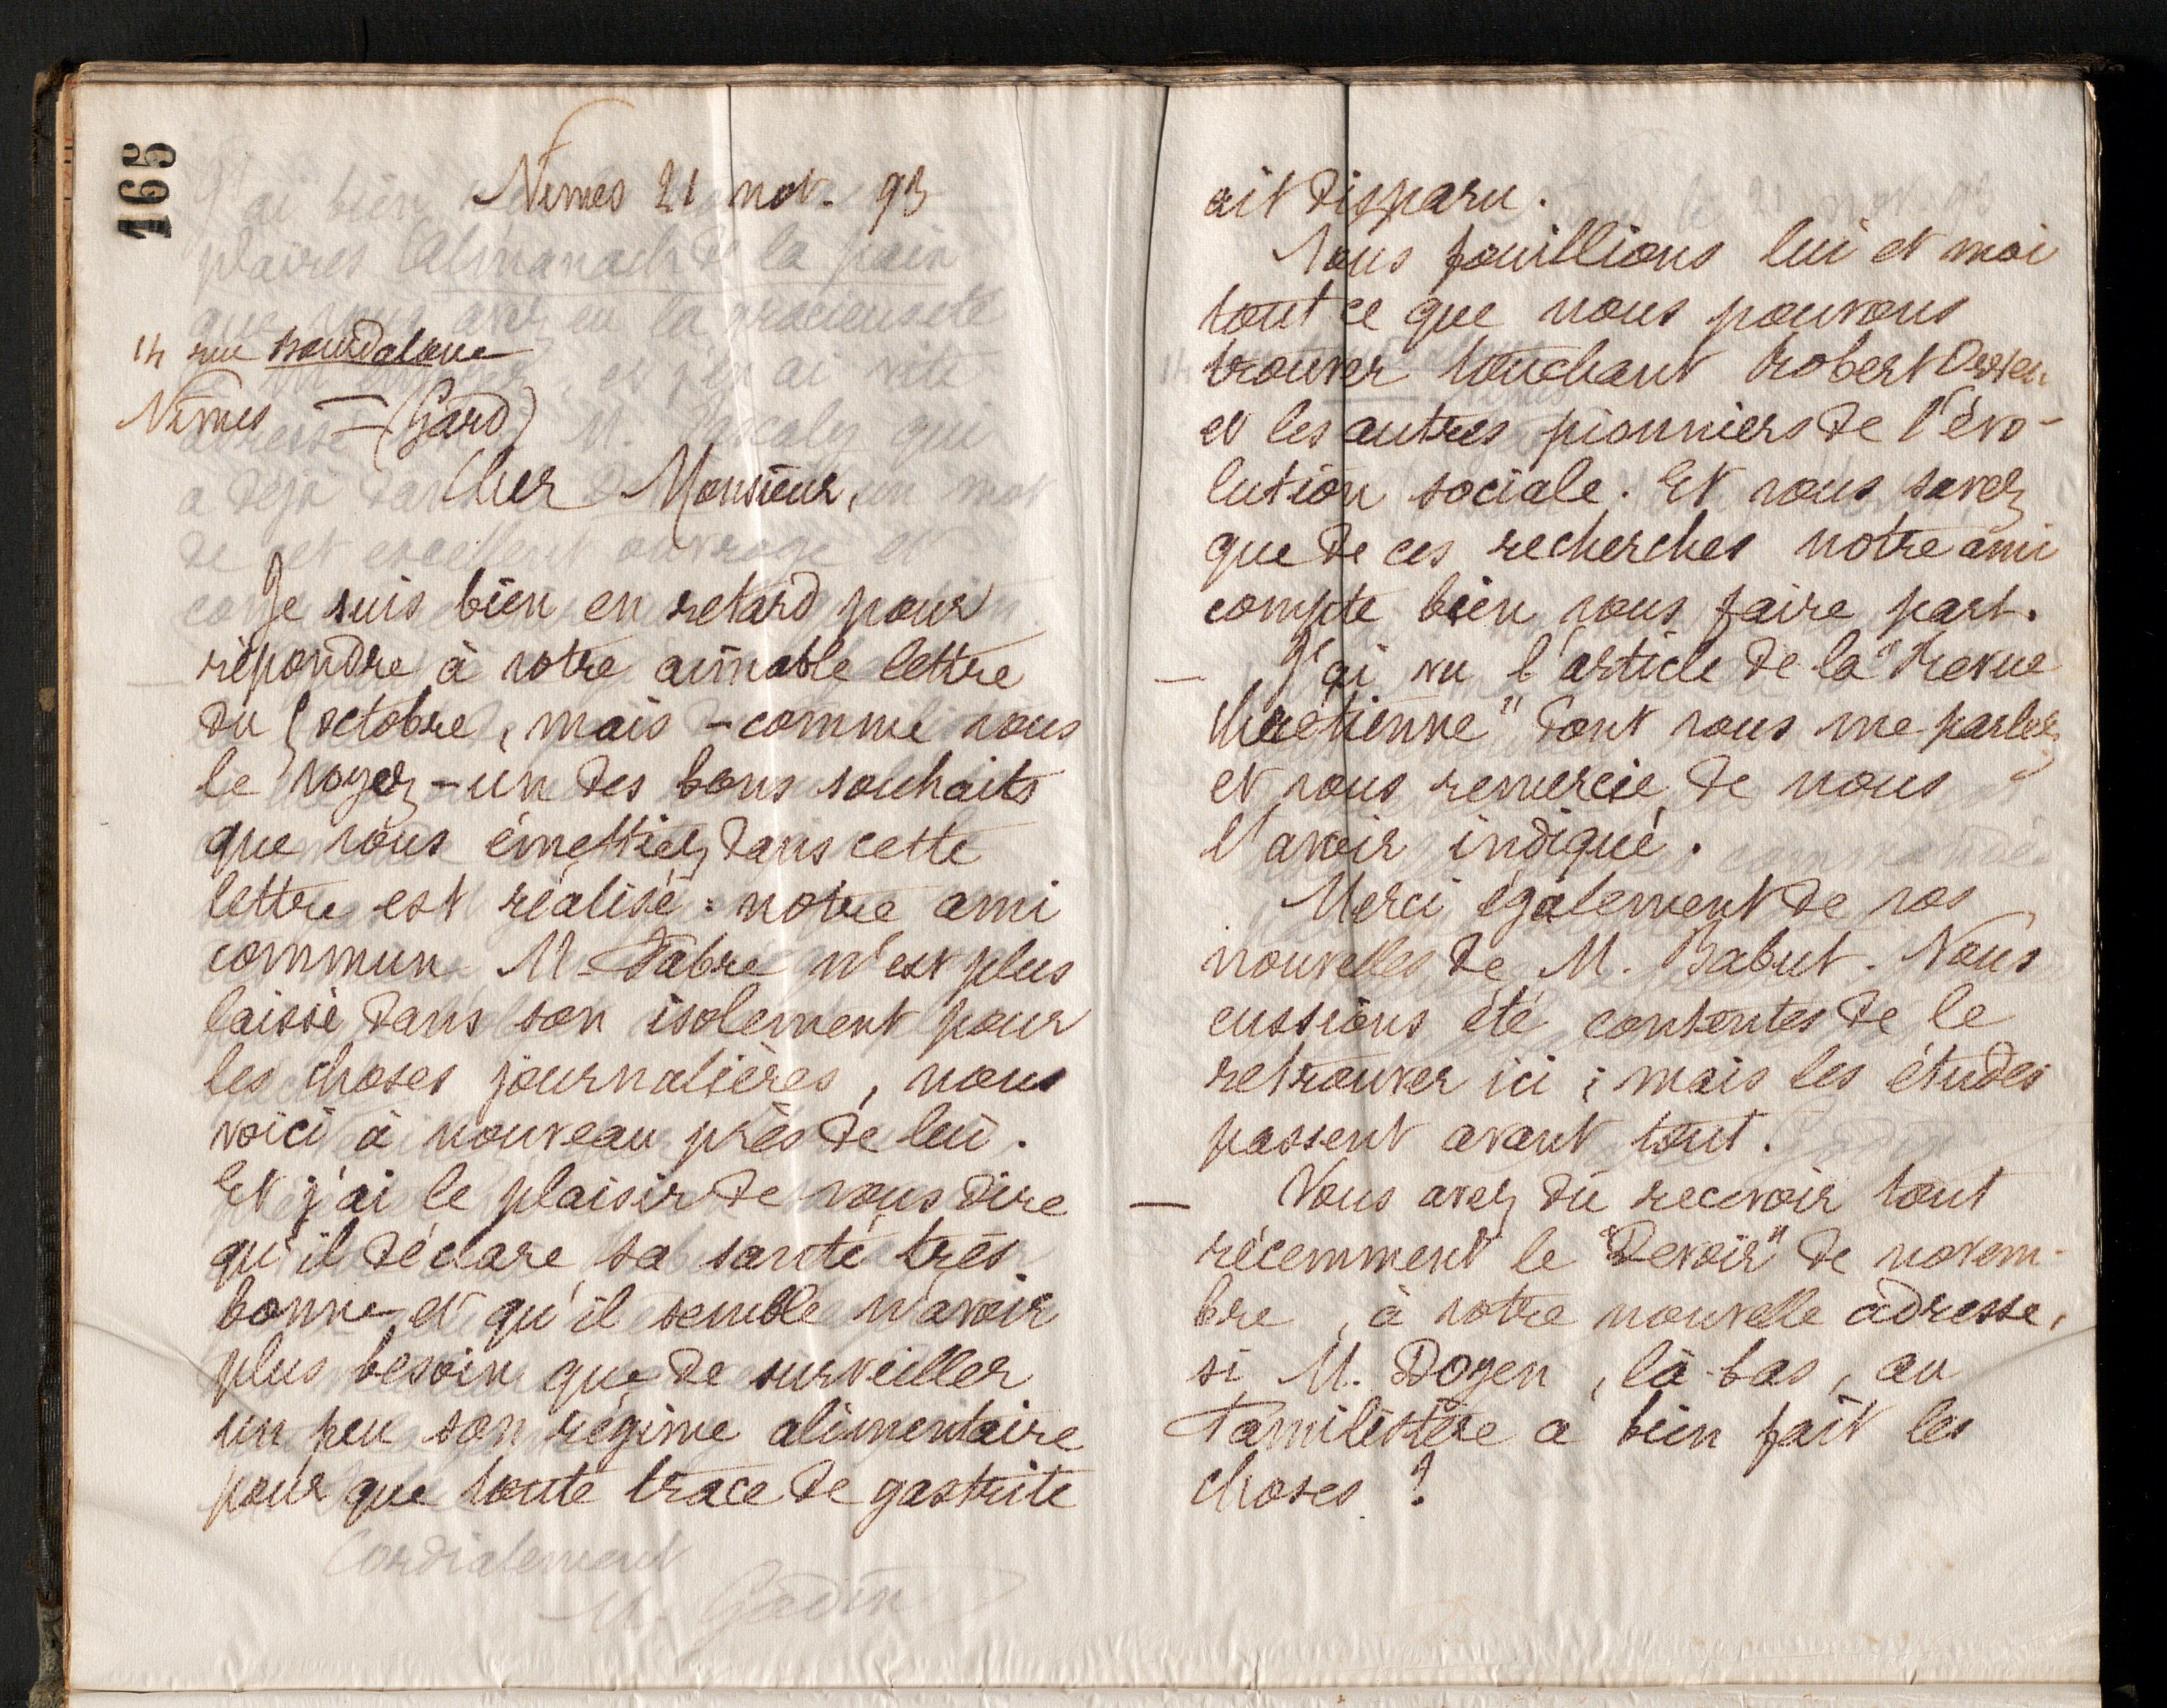 165
Nîmes 21 nov. 93
14 rue Bourdaloue
Nîmes — (Gard)
Cher Monsieur,
Je suis bien en retard pour
répondre à votre aimable lettre
du octobre, mais - comme vous
le voyez - un des bons souhaits
que vous émettiez dans cette
lettre est réalisé : notre ami
commun M. Fabre n'est plus
laissé dans son isolement pour
les choses journalières, nous
voici à nouveau près de lui.
Et j'ai le plaisir de vous dire
qu'il déclare sa santé très
bonne et qu'il semble n'avoir
plus besoin que de surveiller
un peu son régime alimentaire
pour que toute trace de gastrite
Cordialement
M. Godin
ait disparu.
Nous fouillions lui et moi
tout ce que nous pouvons
trouver touchant Robert Owen
et les autres pionniers de l'évo-
lution sociale. Et vous savez
que de ces recherches notre ami
compte bien vous faire part.
— J'ai vu l'article de la "Revue
chrétienne" dont vous me parlez
et vous remercie de nous
l'avoir indiqué.
Merci également de vos
nouvelles de M. Babut. Nous
eussions été contentes de le
retrouver ici ; mais les études
passent avant tout.
— Vous avez dû recevoir tout
récemment le "Devoir" de novem-
bre, à votre nouvelle adresse,
si M. Doyen, là-bas, au
Familistère a bien fait les
choses ?